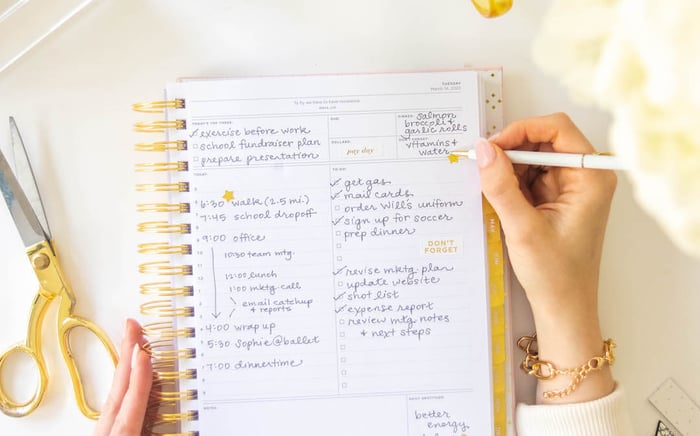 TUESDAY
TODAY'S TOP THREE:
exercise before work
school fundraiser plan
prepare presentation
DUE:
DOLLARS:
pay day
DINNER:
salmon
broccoli &
garlic rolls
DON'T FORGET:
vitamins &
water
TODAY:
6:30 walk (2.5 mi.)
7:45 school dropoff
9:00 office
10:30 team mtg.
12:00 lunch
1:00 mktg. call
email catchup
+ reports
4:00 wrap up
5:30 Sophie @ ballet
7:00 dinnertime
TO DO:
get gas
mail cards
order Will's uniform
sign up for soccer
prep dinner
DON'T
FORGET
revise mktg. plan
update website
shot list
expense report
review mtg notes
+ next steps
NOTES:
DAILY GRATITUDE:
better
energy